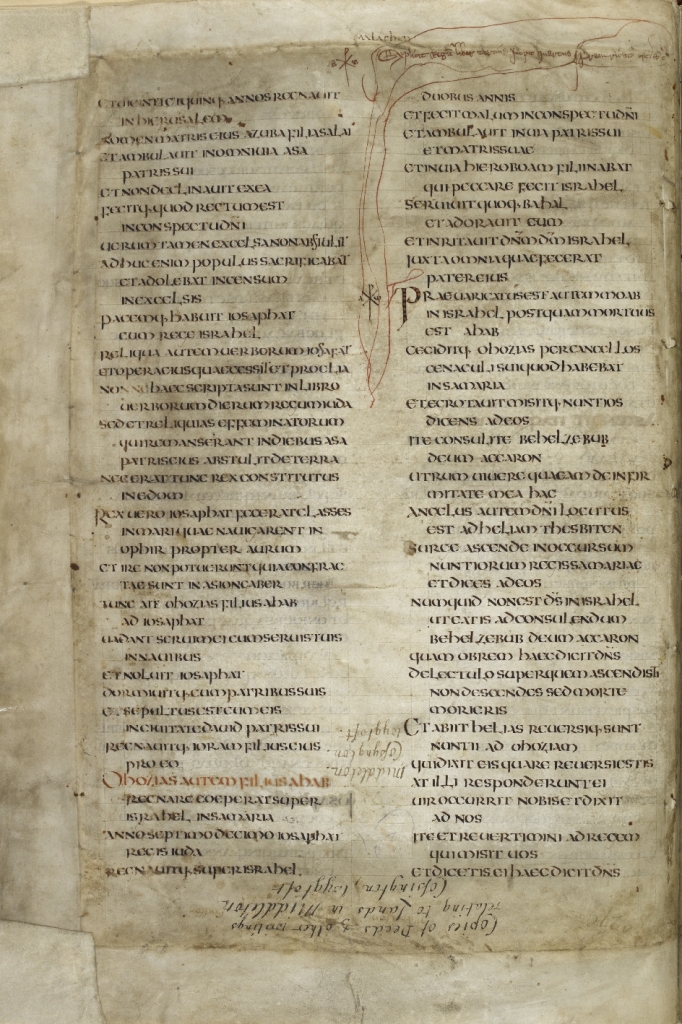 ET UIGINTI QUINQ· ANNOS REGNAUIT
IN HIERUSALEM
NOMEN MATRIS EIUS AZUBA FILIA SALAI
ET AMBULAUIT IN OMNI UIA ASA
PATRIS SUI
ET NON DECLINAUIT EX EA
FECITQ· QUOD RECTUM EST
IN CONSPECTU DN̄I
UERUM TAMEN EXCELSA NON ABSTULIT
ADHUC ENIM POPULUS SACRIFICABAT
ET ADOLEBAT INCENSUM
IN EXCELSIS
PACEMQ· HABUIT IOSAPHAT
CUM REGE ISRAHEL
RELIQUA AUTEM UERBORUM IOSAFAT
ET OPERA EIUS QUAE GESSIT ET PROELIA
NONNE HAEC SCRIPTA SUNT IN LIBRO
UERBORUM DIERUM REGUM IUDA
SED ET RELIQUIAS EFFEMINATORUM
QUI REMANSERANT IN DIEBUS ASA
PATRIS EIUS ABSTULIT DE TERRA
NEC ERAT TUNC REX CONSTITUTUS
IN EDOM
REX UERO IOSAPHAT FECERAT CLASSES
IN MARI QUAE NAUIGARENT IN
OPHIR PROPTER AURUM
ET IRE NON POTUERUNT QUIA CONFRAC
TAE SUNT IN ASIONGABER
TUNC AIT OHOZIAS FILIUS AHAB
AD IOSAPHAT
UADANT SERUI MEI CUM SERUIS TUIS
IN NAUIBUS
ET NOLUIT IOSAPHAT
DORMIUITQ· CUM PATRIBUS SUIS
ET SEPULTUS EST CUM EIS
IN CIUITATE DAUID PATRIS SUI
REGNAUITQ· IORAM FILIUS EIUS
PRO EO
OHOZIAS AUTEM FILIUS AHAB
REGNARE COEPERAT SUPER
ISRAHEL IN SAMARIA
ANNO SEPTIMO DECIMO IOSAPHAT
REGIS IUDA
REGNAUITQ· SUPER ISRAHEL
DUOBUS ANNIS
ET FECIT MALUM IN CONSPECTU DN̄I
ET AMBULAUIT IN UIA PATRIS SUI
ET MATRIS SUAE
ET IN UIA HIEROBOAM FILII NABAT
QUI PECCARE FECIT ISRAHEL
SERUIUIT QUOQ· BAHAL
ET ADORAUIT EUM
ET INRITAUIT DN̄M D̄M ISRAHEL
IUXTA OMNIA QUAE FECERAT
PATER EIUS
PRAEUARICATUS EST AUTEM MOAB
IN ISRAHEL POSTQUAM MORTUUS
EST AHAB
CECIDITQ· OHOZIAS PER CANCELLOS
CENACULI SUI QUOD HABEBAT
IN SAMARIA
ET EGROTAUIT MISITQ· NUNTIOS
DICENS AD EOS
ITE CONSULITE BEHELZEBUB
DEUM ACCARON
UTRUM UIUERE QUEAM DE INFIR
MITATE MEA HAC
ANGELUS AUTEM DN̄I LOCUTUS
EST AD HELIAM THESBITEN
SURGE ASCENDE IN OCCURSUM
NUNTIORUM REGIS SAMARIAE
ET DICES AD EOS
NUMQUID NON EST D̄S IN ISRAHEL
UT EATIS AD CONSULENDUM
BEHELZEBUB DEUM ACCARON
QUAM OBREM HAEC DICIT DN̄S
DE LECTULO SUPER QUEM ASCENDISTI
NON DESCENDES SED MORTE
MORIERIS
ET ABIIT HELIAS REUERSIQ· SUNT
NUNTII AD OHOZIAM
QUI DIXIT EIS QUARE REUERSI ESTIS
AT ILLI RESPONDERUNT EI
UIR OCCURRIT NOBIS ET DIXIT
AD NOS
ITE ET REUERTIMINI AD REGEM
QUI MISIT UOS
ET DICETIS EI HAEC DICIT DN̄S
Middleton.
Copies of Deeds & other writings
relating to Lands in Middleton